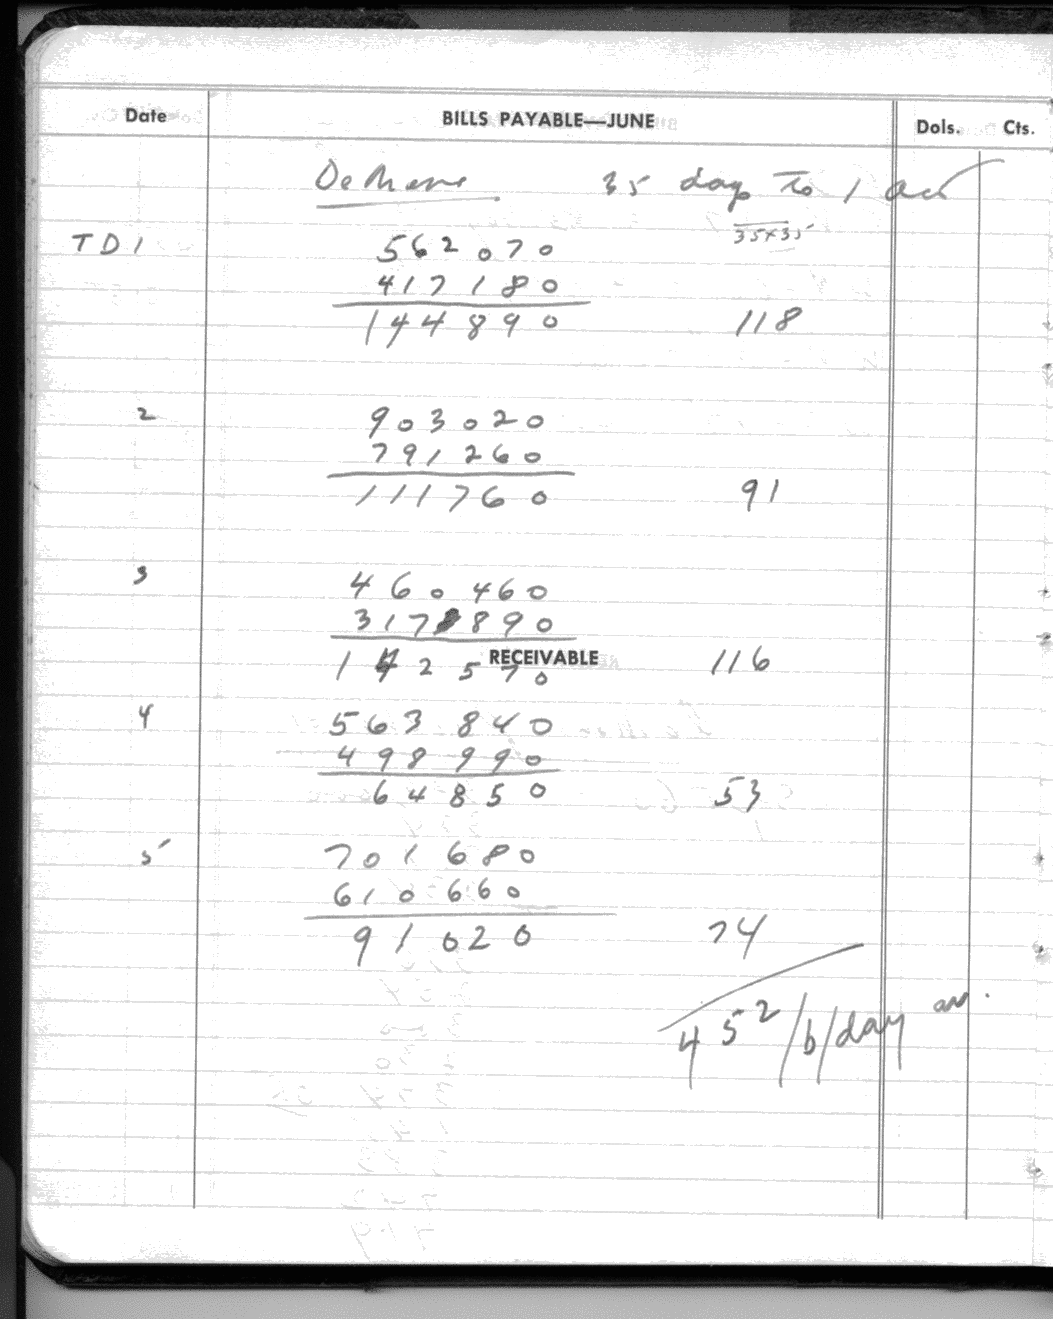 Date BILLS PAYABLE—JUNE Dols. Cts.
35 days To 1 Oct
35x35
TD1 562070
417180
144890 118
2 903020
791260
111760 91
3 460460
317890
142570 116
RECEIVABLE
4 563840
498990
64850 53
5 701680
610660
91020 74
452/b/day av.